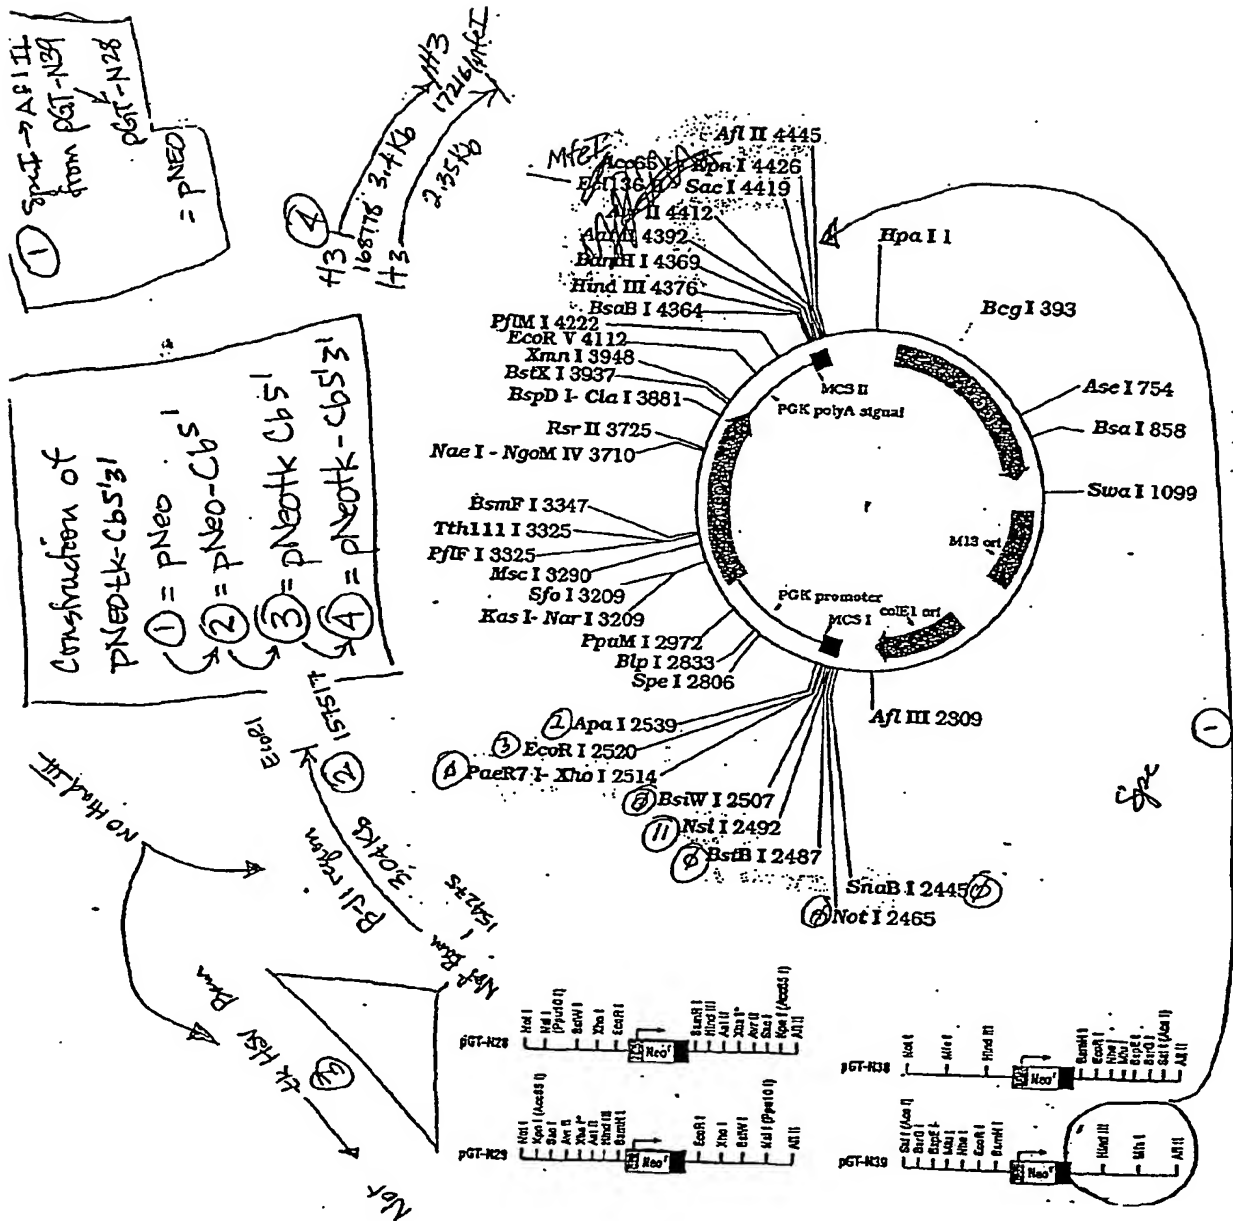 ① SpeI → AflII
from pGT-N39
pGT-N28
= pNEO
④
H3
168778
3.4 Kb
H3
H3
2.35Kb
17216
MfeI
Construction of
pNeotk-Cb5'3'
① = pNeo
② = pNeo-Cb5'
③ = pNeotk Cb5'
④ = pNeotk-Cb5'3'
NO Hind III
EcoRI
② 157517
B-J1 region
3.04Kb
154275
Not Bam
③
tk HSV
Bam
Not
MfeI
Afl II 4445
Acc65 I - Kpn I 4426
Ecl136 II - Sac I 4419
Avr II 4412
Aat II 4392
BamH I 4369
Hind III 4376
BsaB I 4364
PflM I 4222
EcoR V 4112
Xmn I 3948
BstX I 3937
BspD I- Cla I 3881
Rsr II 3725
Nae I - NgoM IV 3710
BsmF I 3347
Tth111 I 3325
PflF I 3325
Msc I 3290
Sfo I 3209
Kas I- Nar I 3209
PpuM I 2972
Blp I 2833
Spe I 2806
Apa I 2539
③ EcoR I 2520
PaeR7 I- Xho I 2514
BsiW I 2507
⑪ Nsi I 2492
BstB I 2487
SnaB I 2445
Not I 2465
Hpa I 1
Bcg I 393
Ase I 754
Bsa I 858
Swa I 1099
Afl III 2309
MCS II
PGK polyA signal
M13 ori
PGK promoter
MCS I
colE1 ori
①
Spe
pGT-N28
Not I
Nsi I
(Ppu10 I)
BsiW I
Xho I
EcoR I
Neoʳ
BamH I
Hind III
Aat II
Xba I*
Avr II
Sac I
Kpn I (Acc65 I)
Afl II
pGT-N29
Not I
Kpn I (Acc65 I)
Sac I
Avr II
Xba I*
Aat II
Hind III
BamH I
Neoʳ
EcoR I
Xho I
BsiW I
Nsi I (Ppu10 I)
Afl II
pGT-N38
Not I
Mfe I
Hind III
Neoʳ
BamH I
EcoR I
Nhe I
Mlu I
BspE I
BsrG I
Sal I (Acc I)
Afl II
pGT-N39
Sal I (Acc I)
BsrG I
BspE I
Mlu I
Nhe I
EcoR I
BamH I
Neoʳ
Hind III
Mfe I
Afl II